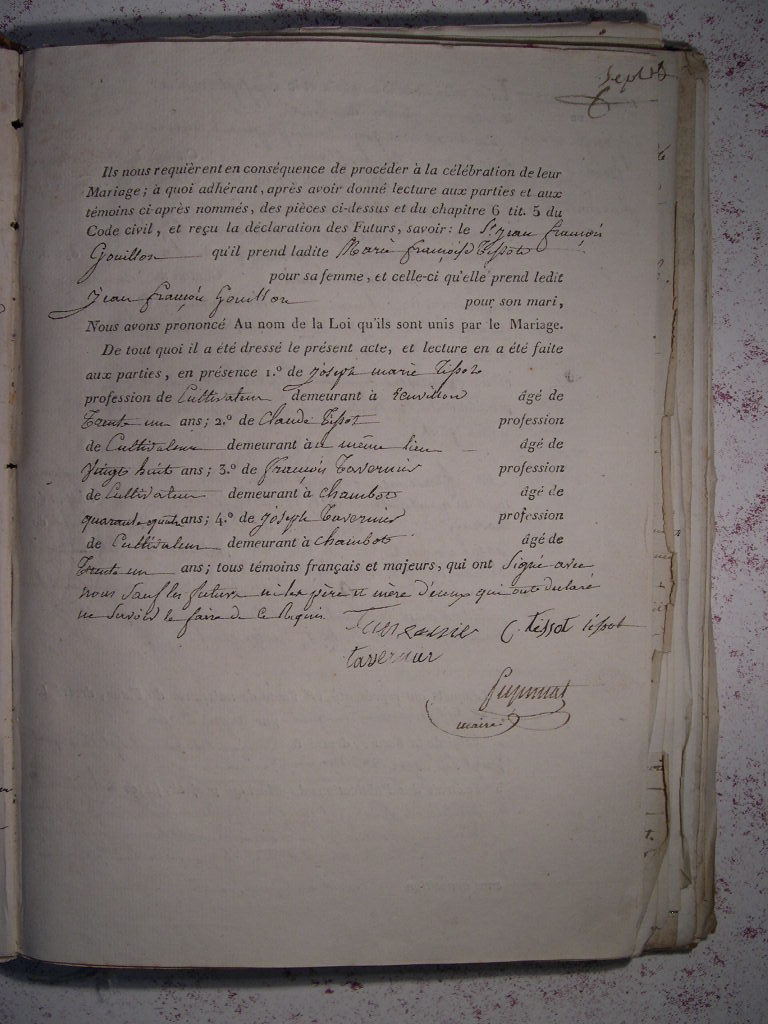 sept
6
Ils nous requièrent en conséquence de procéder à la célébration de leur
Mariage; à quoi adhérant, après avoir donné lecture aux parties et aux
témoins ci-après nommés, des pièces ci-dessus et du chapitre 6 tit. 5 du
Code civil, et reçu la déclaration des Futurs, savoir: le Sr. jean françois
Gouillon qu'il prend ladite Marie françoise Tissot
pour sa femme, et celle-ci qu'elle prend ledit
jean françois Gouillon pour son mari,
Nous avons prononcé Au nom de la Loi qu'ils sont unis par le Mariage.
De tout quoi il a été dressé le présent acte, et lecture en a été faite
aux parties, en présence 1.º de joseph marie Tissot
profession de Cultivateur demeurant à âgé de
Trente un ans; 2.º de Claude Tissot profession
de Cultivateur demeurant à u même lieu âgé de
vingt huit ans; 3.º de françois Tavernier profession
de Cultivateur demeurant à chambot âgé de
quarante quatre ans; 4.º de joseph Tavernier profession
de Cultivateur demeurant à chambot âgé de
Trente un ans; tous témoins français et majeurs, qui ont signé avec
nous sauf les futurs ni les père et mère d'iceux qui ont declaré
ne savoir le faire de ce Requis
C. tissot tissot
tavernier
maire